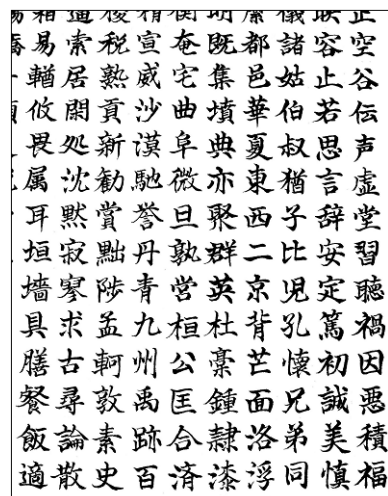 正空谷伝声虚堂習聴禍因悪積福
映容止若思言辞安定篤初誠美慎
儀諸姑伯叔猶子比児孔懐兄弟同
縻都邑華夏東西二京背芒面洛浮
明既集墳典亦聚群英杜稾鍾隷漆
衡奄宅曲阜微旦孰営桓公匡合済
精宣威沙漠馳誉丹青九州禹跡百
稷税熟貢新勧賞黜陟孟軻敦素史
逼索居閑処沈黙寂寥求古尋論散
箱易輶攸畏属耳垣墻具膳餐飯適